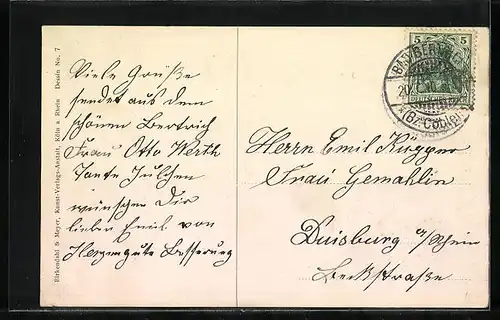 Viele Grüße
sendet aus dem
schönen Bertrich
Frau Otto Werth
Tante Julchen
wünschen Dir
lieber Emil von
Herzen gute Besserung
Herrn Emil Küpper
Frau Gemahlin
Duisburg a/Rhein
Beckstraße
5 5
Birkendahl & Meyer, Kunst-Verlags-Anstalt, Köln a. Rhein Dessin No. 7